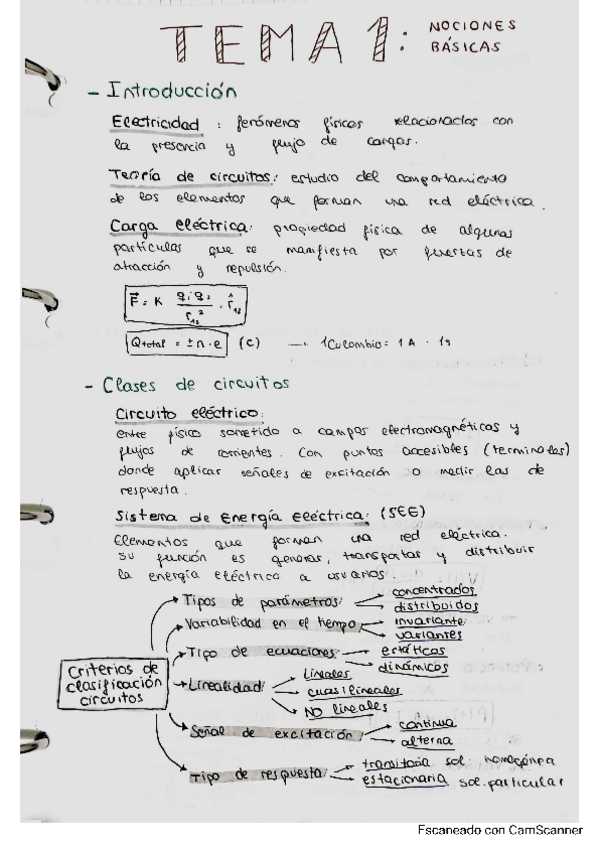 TEMA 1: NOCIONES
BÁSICAS
- Introducción
Electricidad : fenómenos físicos relacionados con
la presencia y flujo de cargas.
Teoría de circuitos: estudio del comportamiento
de los elementos que forman una red eléctrica.
Carga eléctrica: propiedad física de algunas
partículas que se manifiesta por fuerzas de
atracción y repulsión.
F⃗ = K q₁·q₂ / r₁₂² · r̂₁₂
Qtotal = ± n·e (C) → 1Culombio = 1A · 1s
- Clases de circuitos
Circuito eléctrico:
ente físico sometido a campos electromagnéticos y
flujos de corrientes. Con puntos accesibles (terminales)
donde aplicar señales de excitación o medir las de
respuesta.
Sistema de Energía Eléctrica: (SEE)
Elementos que forman una red eléctrica.
Su función es generar, transportar y distribuir
la energía eléctrica a usuarios.
Criterios de
clasificación
circuitos
Tipos de parámetros
concentrados
distribuidos
Variabilidad en el tiempo
invariante
variantes
Tipo de ecuaciones
estáticos
dinámicos
Linealidad
Lineales
cuasilineales
NO lineales
Señal de excitación
continua
alterna
Tipo de respuesta
transitoria sol homogénea
estacionaria sol. particular
Escaneado con CamScanner